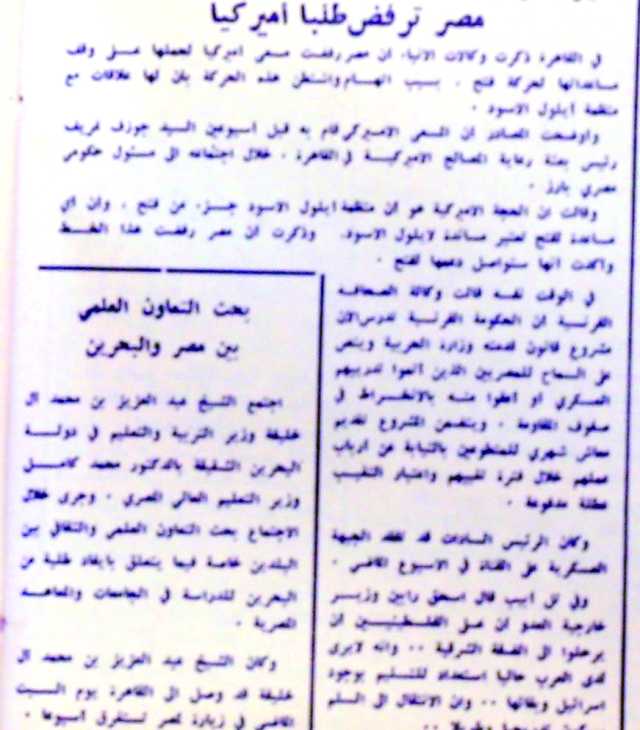 مصر ترفض طلبا أميركيا
في القاهرة ذكرت وكالات الانباء ان مصر رفضت مسعى أميركيا لحملها على وقف
مساعداتها لحركة فتح ، بسبب اتهام واشنطن هذه الحركة بأن لها علاقات مع
منظمة أيلول الاسود .
وأوضحت المصادر ان المسعى الاميركي قام به قبل أسبوعين السيد جوزف غريف
رئيس بعثة رعاية المصالح الاميركية في القاهرة ، خلال اجتماعه الى مسئول حكومي
مصري بارز .
وقالت ان الحجة الاميركية هو ان منظمة ايلول الاسود جزء من فتح ، وان أي
مساعدة لفتح تعتبر مساندة لايلول الاسود. وذكرت ان مصر رفضت هذا الضغط
وأكدت انها ستواصل دعمها لفتح .
في الوقت نفسه قالت وكالة الصحافة
الفرنسية ان الحكومة المصرية تدرس الان
مشروع قانون قدمته وزارة الحربية وينص
على السماح للمصريين الذين أتموا تدريبهم
العسكري أو أعفوا منه بالانخراط في
صفوف المقاومة . ويتضمن المشروع تقديم
معاش شهري للمتطوعين بالنيابة عن أرباب
عملهم خلال فترة تغيبهم واعتبار التغيب
عطلة مدفوعة .
وكان الرئيس السادات قد تفقد الجبهة
العسكرية على القناة في الاسبوع الماضي .
وفي تل أبيب قال اسحق رابين وزير
خارجية العدو ان على الفلسطينيين أن
يرحلوا الى الضفة الشرقية .. وانه لايرى
لدى العرب حاليا استعداد للتسليم بوجود
اسرائيل وبقائها .. وان الانتقال الى السلم
بحث التعاون العلمي
بين مصر والبحرين
اجتمع الشيخ عبد العزيز بن محمد ال
خليفة وزير التربية والتعليم في دولة
البحرين الشقيقة بالدكتور محمد كامل
وزير التعليم العالي المصري . وجرى خلال
الاجتماع بحث التعاون العلمي والثقافي بين
البلدين خاصة فيما يتعلق بايفاد طلبة من
البحرين للدراسة في الجامعات والمعاهد
المصرية .
وكان الشيخ عبد العزيز بن محمد ال
خليفة قد وصل الى القاهرة يوم السبت
الماضي في زيارة لمصر تستغرق أسبوعا .